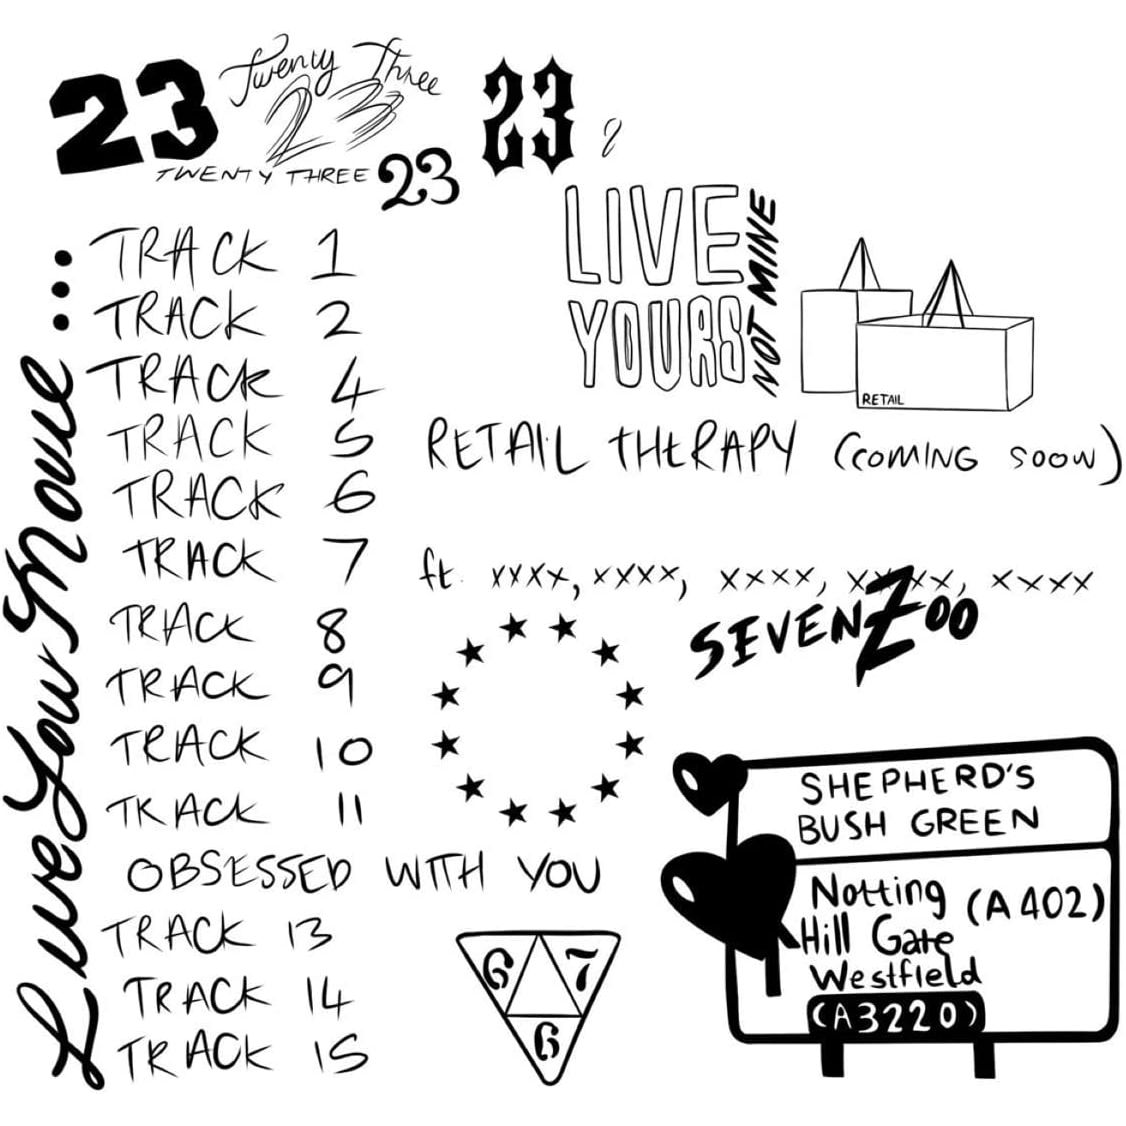 23
Twenty Three
23
TWENTY THREE
23
23
2
LIVE
YOURS
NOT MINE
Live Your Movie...
TRACK 1
TRACK 2
TRACK 4
TRACK 5
TRACK 6
TRACK 7
TRACK 8
TRACK 9
TRACK 10
TRACK 11
OBSESSED WITH YOU
TRACK 13
TRACK 14
TRACK 15
RETAIL
RETAIL THERAPY (COMING SOON)
ft. xxxx, xxxx, xxxx, xxxx, xxxx
SEVENZOO
SHEPHERD'S
BUSH GREEN
Notting (A402)
Hill Gate
Westfield
(A3220)
6 7
6